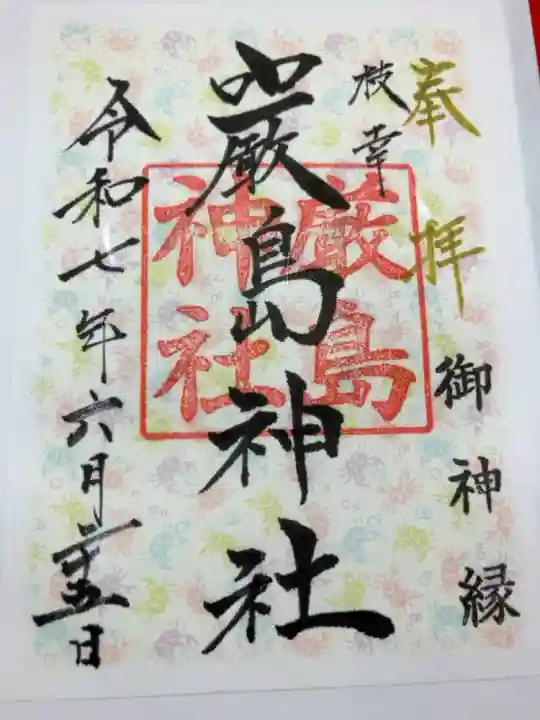 奉拝
御神縁
枝幸
厳島神社
厳島
神社
令和七年六月二十五日